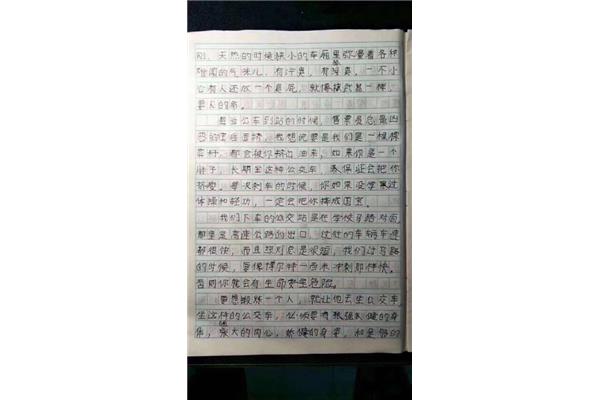 刚。天热的时候狭小的车厢里弥漫着各种
难闻的气味儿，有汗臭，有脚臭，一不小
心有人还放一个臭屁，就像搞武器一样，
要人的命。
每当公车到站的时候，售票员总是凶
恶的往后面挤，我想他要是我们是一根榨
菜杆，都会被你挤出油来，如果你是一个
胖子，长期坐这种公交车，我保证会把你
挤瘦。每次刹车的时候，你如果没学过
体操和轻功，一定会把你摔成国宝。
我们下车的公交站是在学校马路对面，
那里是高速公路的出口，过往的车辆车速
都很快，而且绿灯总是很短，我们过马路
的时候，要像博尔特一百米冲刺那样快。
否则你就会有生命安全危险。
要想锻炼一个人，就让他去坐公交车，
坐这样的公交车，必须要有强健的身
体，强大的内心，矫健的身姿，和足够的